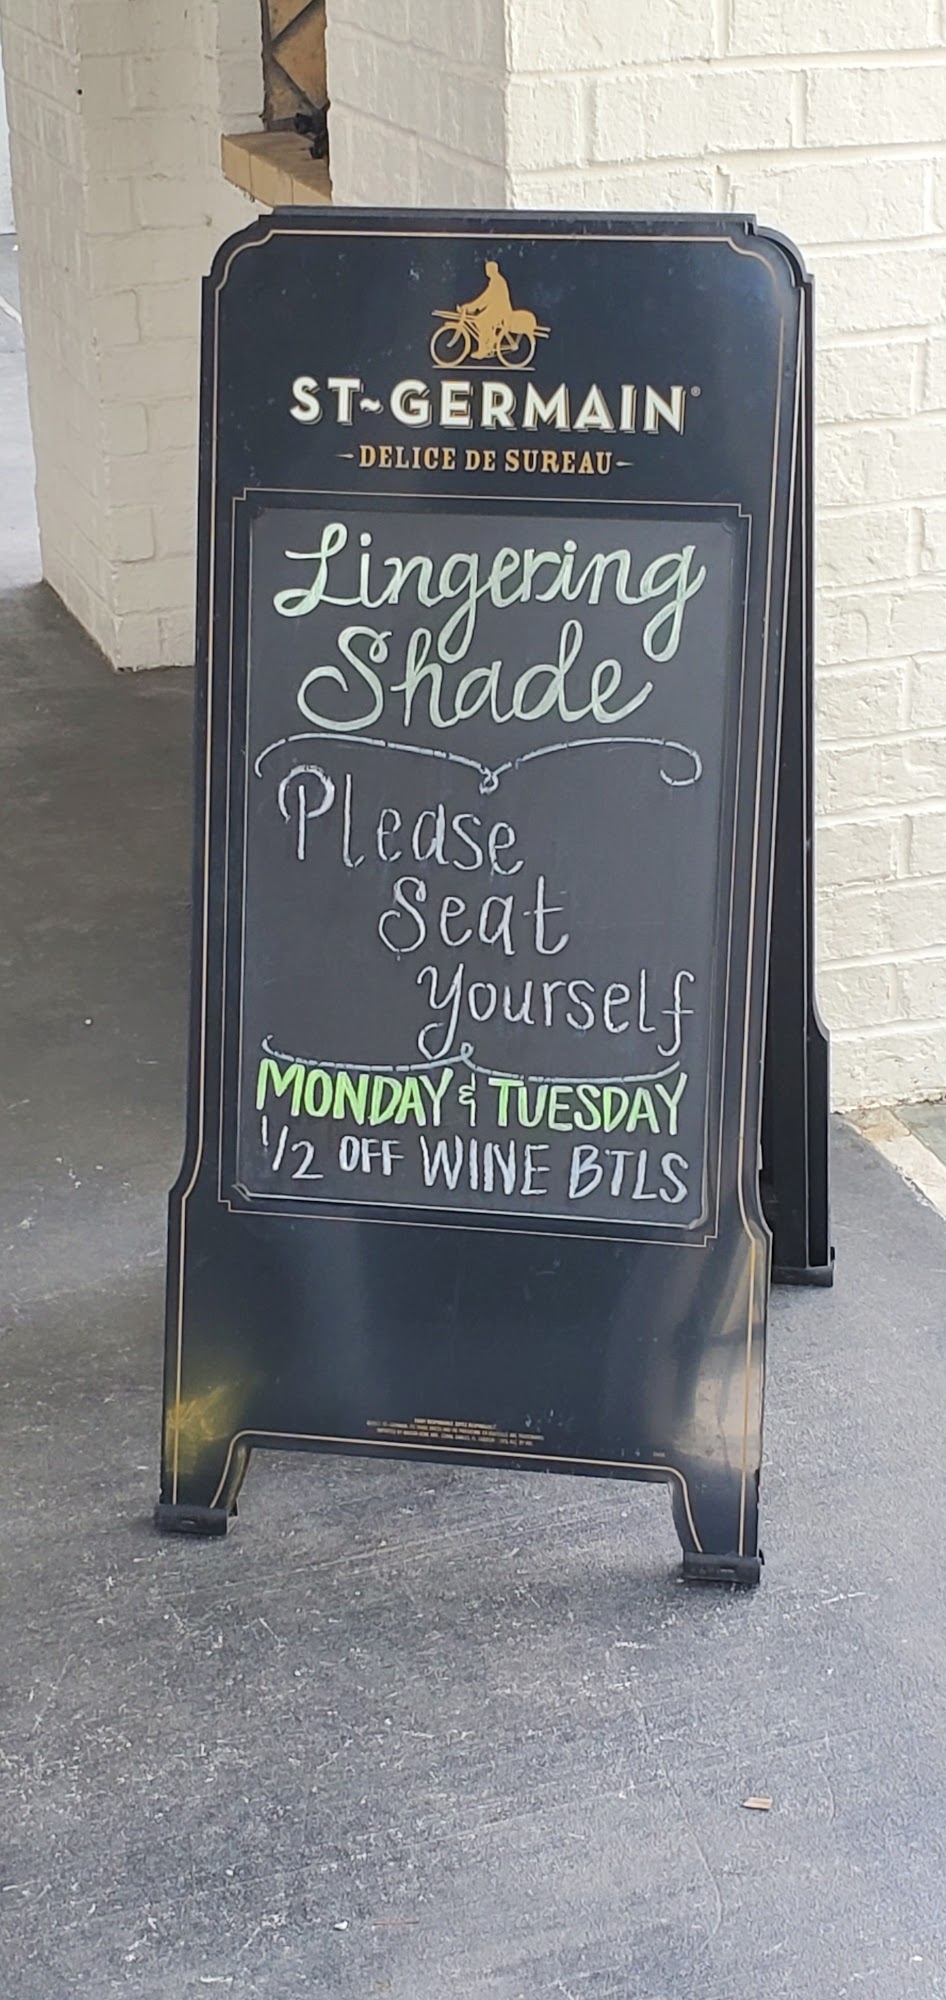 ST~GERMAIN®
-DELICE DE SUREAU-
Lingering
Shade
Please
Seat
Yourself
MONDAY & TUESDAY
1/2 OFF WINE BTLS